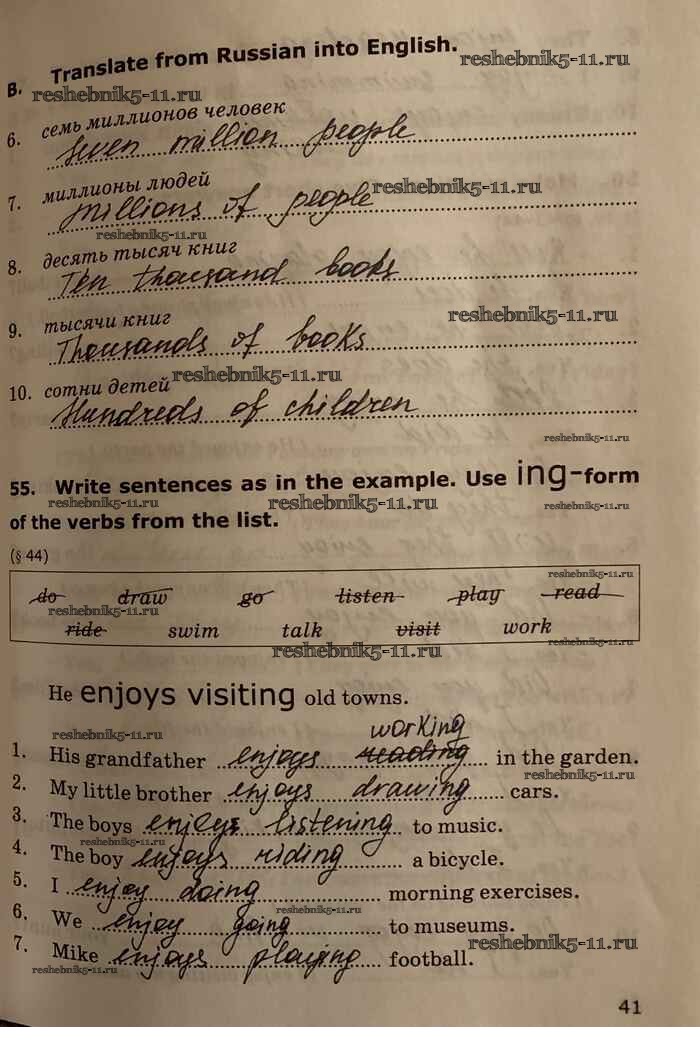 B. Translate from Russian into English.
reshebnik5-11.ru
reshebnik5-11.ru
6. семь миллионов человек
Seven million people
7. миллионы людей
reshebnik5-11.ru
millions of people
reshebnik5-11.ru
8. десять тысяч книг
Ten thousand books
9. тысячи книг
reshebnik5-11.ru
Thousands of books
10. сотни детей
reshebnik5-11.ru
Hundreds of children
reshebnik5-11.ru
55. Write sentences as in the example. Use ing-form
reshebnik5-11.ru reshebnik5-11.ru reshebnik5-11.ru
of the verbs from the list.
(§ 44)
reshebnik5-11.ru
do draw go listen play read
reshebnik5-11.ru
ride swim talk visit work
reshebnik5-11.ru
reshebnik5-11.ru
He enjoys visiting old towns.
reshebnik5-11.ru
working
1. His grandfather enjoys reading in the garden.
reshebnik5-11.ru
2. My little brother enjoys drawing cars.
3. The boys enjoys listening to music.
reshebnik5-11.ru
4. The boy enjoys riding a bicycle.
5. I enjoy doing morning exercises.
reshebnik5-11.ru
6. We enjoy going to museums.
reshebnik5-11.ru
7. Mike enjoys playing football.
reshebnik5-11.ru
41